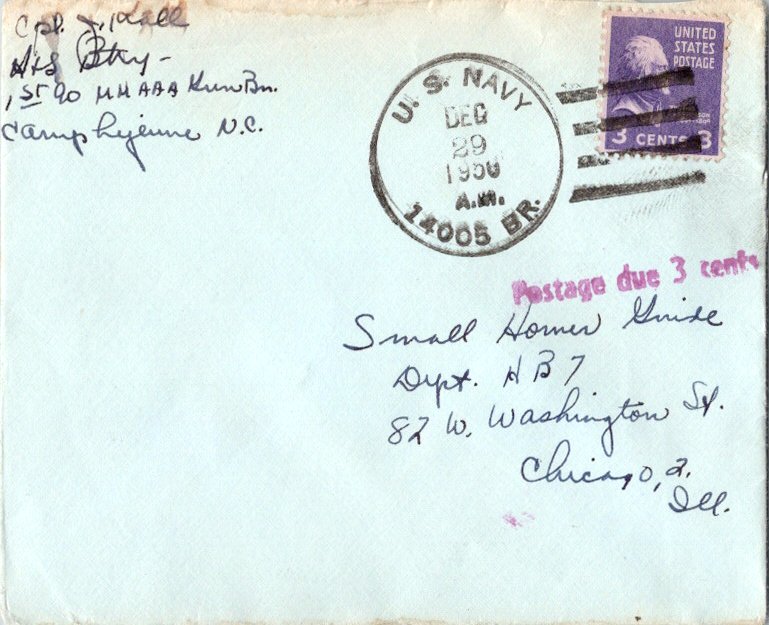 Cpl. J. Kall
H+S Btry -
1st 90 MM AAA Gun Bn.
Camp Lejeune N.C.
U. S. NAVY
DEC
29
1950
A.M.
14005 BR.
UNITED
STATES
POSTAGE
3 CENTS 3
Postage due 3 cents
Small Homes Guide
Dept. HB7
82 W. Washington St.
Chicago, 2.
Ill.